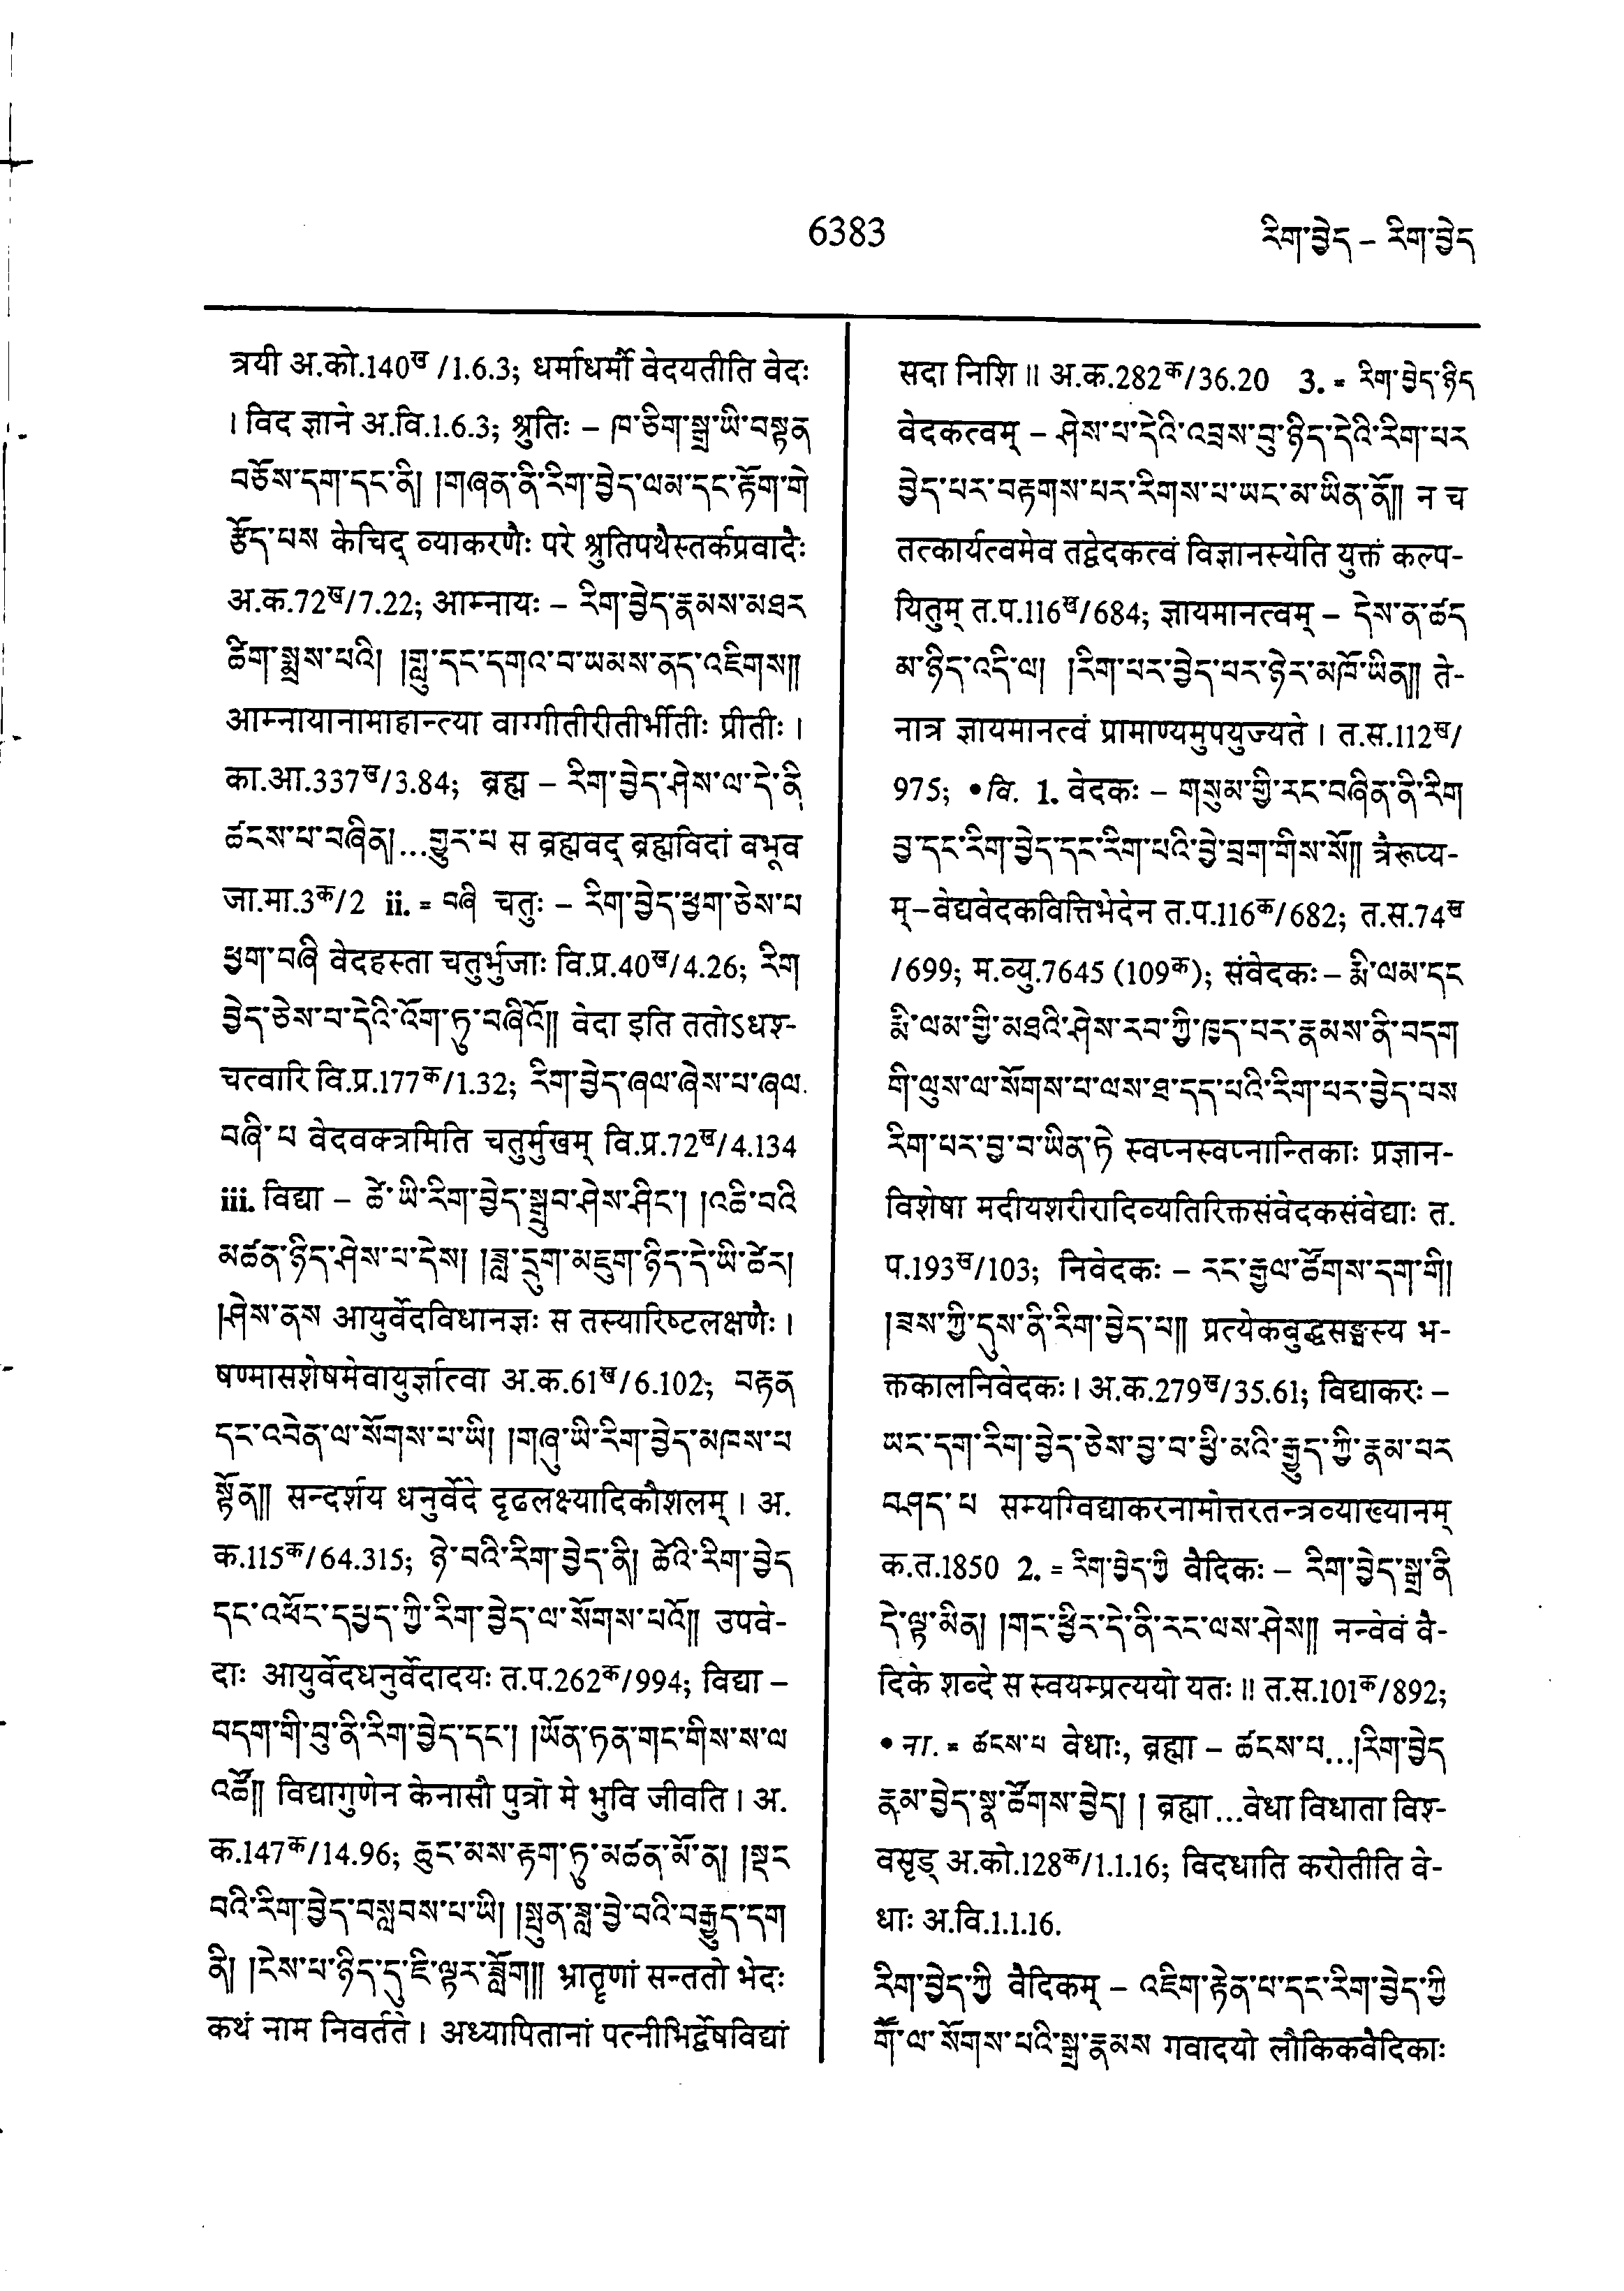 6383
རིག་བྱེད – རིག་བྱེད
त्रयी अ.को.140ख /1.6.3; धर्माधर्मौ वेदयतीति वेदः
। विद ज्ञाने अ.वि.1.6.3; श्रुतिः – ཁ་ཅིག་སྒྲ་ཡི་བསྟན
བཅོས་དག་དང་ནི། །གཞན་ནི་རིག་བྱེད་ལམ་དང་རྟོག་གེ
རྩོད་པས केचिद् व्याकरणैः परे श्रुतिपथैस्तर्कप्रवादैः
अ.क.72ख/7.22; आम्नायः – རིག་བྱེད་རྣམས་མཐར
ཚིག་སྨྲས་པའི། །གླུ་དང་དགའ་བ་ཡམས་ནད་འཇིགས།།
आम्नायानामाहान्त्या वाग्गीतीरीतीर्भीतीः प्रीतीः ।
का.आ.337ख/3.84; ब्रह्म – རིག་བྱེད་ཤེས་ལ་དེ་ནི
ཚངས་པ་བཞིན།...གྱུར་པ स ब्रह्मवद् ब्रह्मविदां बभूव
जा.मा.3क/2 ii. = བཞི चतुः – རིག་བྱེད་ཕྱག་ཅེས་པ
ཕྱག་བཞི वेदहस्ता चतुर्भुजाः वि.प्र.40ख/4.26; རིག
བྱེད་ཅེས་པ་དེའི་འོག་ཏུ་བཞིའོ།། वेदा इति ततोऽधश्-
चत्वारि वि.प्र.177क/1.32; རིག་བྱེད་ཞལ་ཞེས་པ་ཞལ
བཞི་པ वेदवक्त्रमिति चतुर्मुखम् वि.प्र.72ख/4.134
iii. विद्या – ཚེ་ཡི་རིག་བྱེད་སྒྲུབ་ཤེས་ཤིང་། །འཆི་བའི
མཚན་ཉིད་ཤེས་པ་དེས། །ཟླ་དྲུག་མཇུག་ཉིད་དེ་ཡི་ཚེར།
།ཤེས་ནས आयुर्वेदविधानज्ञः स तस्यारिष्टलक्षणैः ।
षण्मासशेषमेवायुर्ज्ञात्वा अ.क.61ख/6.102; བརྟན
དང་འབེན་ལ་སོགས་པ་ཡི། །གཞུ་ཡི་རིག་བྱེད་མཁས་པ
སྟོན།། सन्दर्शय धनुर्वेदे दृढलक्ष्यादिकौशलम् । अ.
क.115क/64.315; ཉེ་བའི་རིག་བྱེད་ནི། ཚེའི་རིག་བྱེད
དང་འཕོང་དཔྱད་ཀྱི་རིག་བྱེད་ལ་སོགས་པའོ།། उपवे-
दाः आयुर्वेदधनुर्वेदादयः त.प.262क/994; विद्या –
བདག་གི་བུ་ནི་རིག་བྱེད་དང་། །ཡོན་ཏན་གང་གིས་ས་ལ
འཚོ།། विद्यागुणेन केनासौ पुत्रो मे भुवि जीवति । अ.
क.147क/14.96; ཆུང་མས་རྟག་ཏུ་མཚན་མོ་ན། །སྡང
བའི་རིག་བྱེད་བསླབས་པ་ཡི། །སྤུན་ཟླ་བྱེ་བའི་བརྒྱུད་དག
ནི། །ངེས་པ་ཉིད་དུ་ཇི་ལྟར་ཟློག།། भ्रातॄणां सन्ततो भेदः
कथं नाम निवर्तते । अध्यापितानां पत्नीभिर्द्वेषविद्यां
सदा निशि ॥ अ.क.282क/36.20 3. = རིག་བྱེད་ཉིད
वेदकत्वम् – ཤེས་པ་དེའི་འབྲས་བུ་ཉིད་དེའི་རིག་པར
བྱེད་པར་བརྟགས་པར་རིགས་པ་ཡང་མ་ཡིན་ནོ།། न च
तत्कार्यत्वमेव तद्वेदकत्वं विज्ञानस्येति युक्तं कल्प-
यितुम् त.प.116ख/684; ज्ञायमानत्वम् – དེས་ན་ཚད
མ་ཉིད་འདི་ལ། །རིག་པར་བྱེད་པར་ཉེར་མཁོ་ཡིན།། ते-
नात्र ज्ञायमानत्वं प्रामाण्यमुपयुज्यते । त.स.112ख/
975; • वि. 1. वेदकः – གསུམ་གྱི་རང་བཞིན་ནི་རིག
བྱ་དང་རིག་བྱེད་དང་རིག་པའི་བྱེ་བྲག་གིས་སོ།། त्रैरूप्य-
म्–वेद्यवेदकवित्तिभेदेन त.प.116क/682; त.स.74ख
/699; म.व्यु.7645 (109क); संवेदकः – རྨི་ལམ་དང
རྨི་ལམ་གྱི་མཐའི་ཤེས་རབ་ཀྱི་ཁྱད་པར་རྣམས་ནི་བདག
གི་ལུས་ལ་སོགས་པ་ལས་ཐ་དད་པའི་རིག་པར་བྱེད་པས
རིག་པར་བྱ་བ་ཡིན་ཏེ स्वप्नस्वप्नान्तिकाः प्रज्ञान-
विशेषा मदीयशरीरादिव्यतिरिक्तसंवेदकसंवेद्याः त.
प.193ख/103; निवेदकः – རང་རྒྱལ་ཚོགས་དག་གི།
།ཟས་ཀྱི་དུས་ནི་རིག་བྱེད་པ།། प्रत्येकबुद्धसङ्घस्य भ-
क्तकालनिवेदकः । अ.क.279ख/35.61; विद्याकरः –
ཡང་དག་རིག་བྱེད་ཅེས་བྱ་བ་ཕྱི་མའི་རྒྱུད་ཀྱི་རྣམ་པར
བཤད་པ सम्यग्विद्याकरनामोत्तरतन्त्रव्याख्यानम्
क.त.1850 2. = རིག་བྱེད་ཀྱི वैदिकः – རིག་བྱེད་སྒྲ་ནི
དེ་ལྟ་མིན། །གང་ཕྱིར་དེ་ནི་རང་ལས་ཤེས།། नन्वेवं वै-
दिके शब्दे स स्वयम्प्रत्ययो यतः ॥ त.स.101क/892;
• ना. = ཚངས་པ वेधाः, ब्रह्मा – ཚངས་པ...།རིག་བྱེད
རྣམ་བྱེད་སྣ་ཚོགས་བྱེད། । ब्रह्मा...वेधा विधाता विश्-
वसृड् अ.को.128क/1.1.16; विदधाति करोतीति वे-
धाः अ.वि.1.1.16.
རིག་བྱེད་ཀྱི वैदिकम् – འཇིག་རྟེན་པ་དང་རིག་བྱེད་ཀྱི
གོོ་ལ་སོགས་པའི་སྒྲ་རྣམས गवादयो लौकिकवैदिकाः